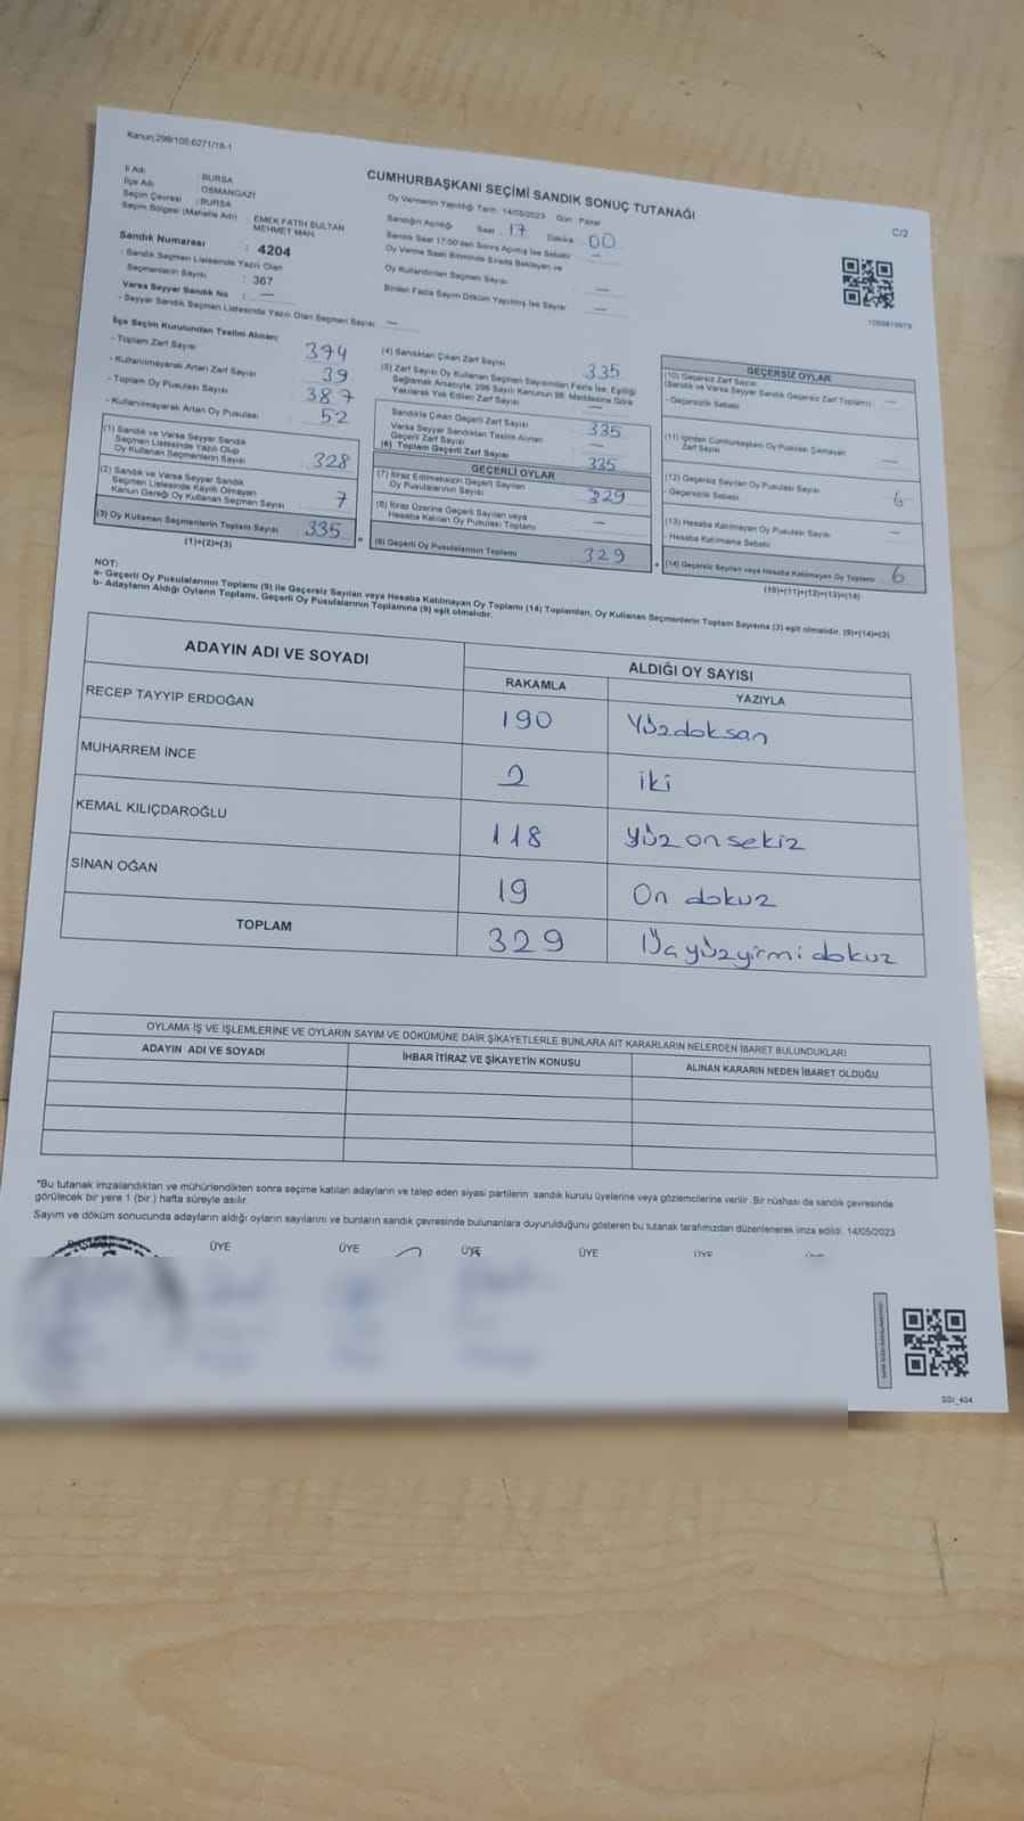 Kanun:298/105.6271/18-1
CUMHURBAŞKANI SEÇİMİ SANDIK SONUÇ TUTANAĞI
C/2
İl Adı : BURSA
İlçe Adı : OSMANGAZİ
Seçim Çevresi : BURSA
Seçim Bölgesi (Mahalle Adı) : EMEK FATİH SULTAN MEHMET MAH.
Sandık Numarası : 4204
- Sandık Seçmen Listesinde Yazılı Olan
Seçmenlerin Sayısı : 367
Varsa Seyyar Sandık No : —
- Seyyar Sandık Seçmen Listesinde Yazılı Olan Seçmen Sayısı —
Oy Vermenin Yapıldığı Tarih 14/05/2023 Gün Pazar
Sandığın Açıldığı Saat 17 Dakika 00
Sandık Saat 17:00'den Sonra Açılmış İse Sebebi —
Oy Verme Saati Bitiminde Sırada Bekleyen ve
Oy Kullandırılan Seçmen Sayısı —
Birden Fazla Sayım Döküm Yapılmış İse Sayısı —
İlçe Seçim Kurulundan Teslim Alınan;
- Toplam Zarf Sayısı 394
- Kullanılmayarak Artan Zarf Sayısı 39
- Toplam Oy Pusulası Sayısı 387
- Kullanılmayarak Artan Oy Pusulası 52
(1) Sandık ve Varsa Seyyar Sandık
Seçmen Listesinde Yazılı Olup
Oy Kullanan Seçmenlerin Sayısı 328
(2) Sandık ve Varsa Seyyar Sandık
Seçmen Listesinde Kayıtlı Olmayan
Kanun Gereği Oy Kullanan Seçmen Sayısı 7
(3) Oy Kullanan Seçmenlerin Toplam Sayısı 335
(1)+(2)=(3)
(4) Sandıktan Çıkan Zarf Sayısı 335
(5) Zarf Sayısı Oy Kullanan Seçmen Sayısından Fazla İse, Eşitliği
Sağlamak Amacıyla, 298 Sayılı Kanunun 98. Maddesine Göre
Yakılarak Yok Edilen Zarf Sayısı —
Sandıkta Çıkan Geçerli Zarf Sayısı 335
Varsa Seyyar Sandıktan Teslim Alınan
Geçerli Zarf Sayısı —
(6) Toplam Geçerli Zarf Sayısı 335
GEÇERLİ OYLAR
(7) İtiraz Edilmeksizin Geçerli Sayılan
Oy Pusulalarının Sayısı 329
(8) İtiraz Üzerine Geçerli Sayılan veya
Hesaba Katılan Oy Pusulası Toplamı —
(9) Geçerli Oy Pusulalarının Toplamı 329
GEÇERSİZ OYLAR
(10) Geçersiz Zarf Sayısı
(Sandık ve Varsa Seyyar Sandık Geçersiz Zarf Toplamı) —
- Geçersizlik Sebebi
(11) İçinden Cumhurbaşkanı Oy Pusulası Çıkmayan
Zarf Sayısı —
(12) Geçersiz Sayılan Oy Pusulası Sayısı 6
- Geçersizlik Sebebi
(13) Hesaba Katılmayan Oy Pusulası Sayısı —
- Hesaba Katılmama Sebebi
(14) Geçersiz Sayılan veya Hesaba Katılmayan Oy Toplamı 6
(10)+(11)+(12)+(13)=(14)
NOT:
a- Geçerli Oy Pusulalarının Toplamı (9) ile Geçersiz Sayılan veya Hesaba Katılmayan Oy Toplamı (14) Toplamları, Oy Kullanan Seçmenlerin Toplam Sayısına (3) eşit olmalıdır. (9)+(14)=(3)
b- Adayların Aldığı Oyların Toplamı, Geçerli Oy Pusulalarının Toplamına (9) eşit olmalıdır.
ADAYIN ADI VE SOYADI
ALDIĞI OY SAYISI
RAKAMLA YAZIYLA
RECEP TAYYİP ERDOĞAN 190 Yüzdoksan
MUHARREM İNCE 2 iki
KEMAL KILIÇDAROĞLU 118 yüz onsekiz
SİNAN OĞAN 19 On dokuz
TOPLAM 329 Üçyüzyirmidokuz
OYLAMA İŞ VE İŞLEMLERİNE VE OYLARIN SAYIM VE DÖKÜMÜNE DAİR ŞİKAYETLERLE BUNLARA AİT KARARLARIN NELERDEN İBARET BULUNDUKLARI
ADAYIN ADI VE SOYADI İHBAR İTİRAZ VE ŞİKAYETİN KONUSU ALINAN KARARIN NEDEN İBARET OLDUĞU
*Bu tutanak imzalandıktan ve mühürlendikten sonra seçime katılan adayların ve talep eden siyasi partilerin sandık kurulu üyelerine veya gözlemcilerine verilir. Bir nüshası da sandık çevresinde
görülecek bir yere 1 (bir) hafta süreyle asılır.
Sayım ve döküm sonucunda adayların aldığı oyların sayılarını ve bunların sandık çevresinde bulunanlara duyurulduğunu gösteren bu tutanak tarafımızdan düzenlenerek imza edildi. 14/05/2023
ÜYE ÜYE ÜYE ÜYE ÜYE